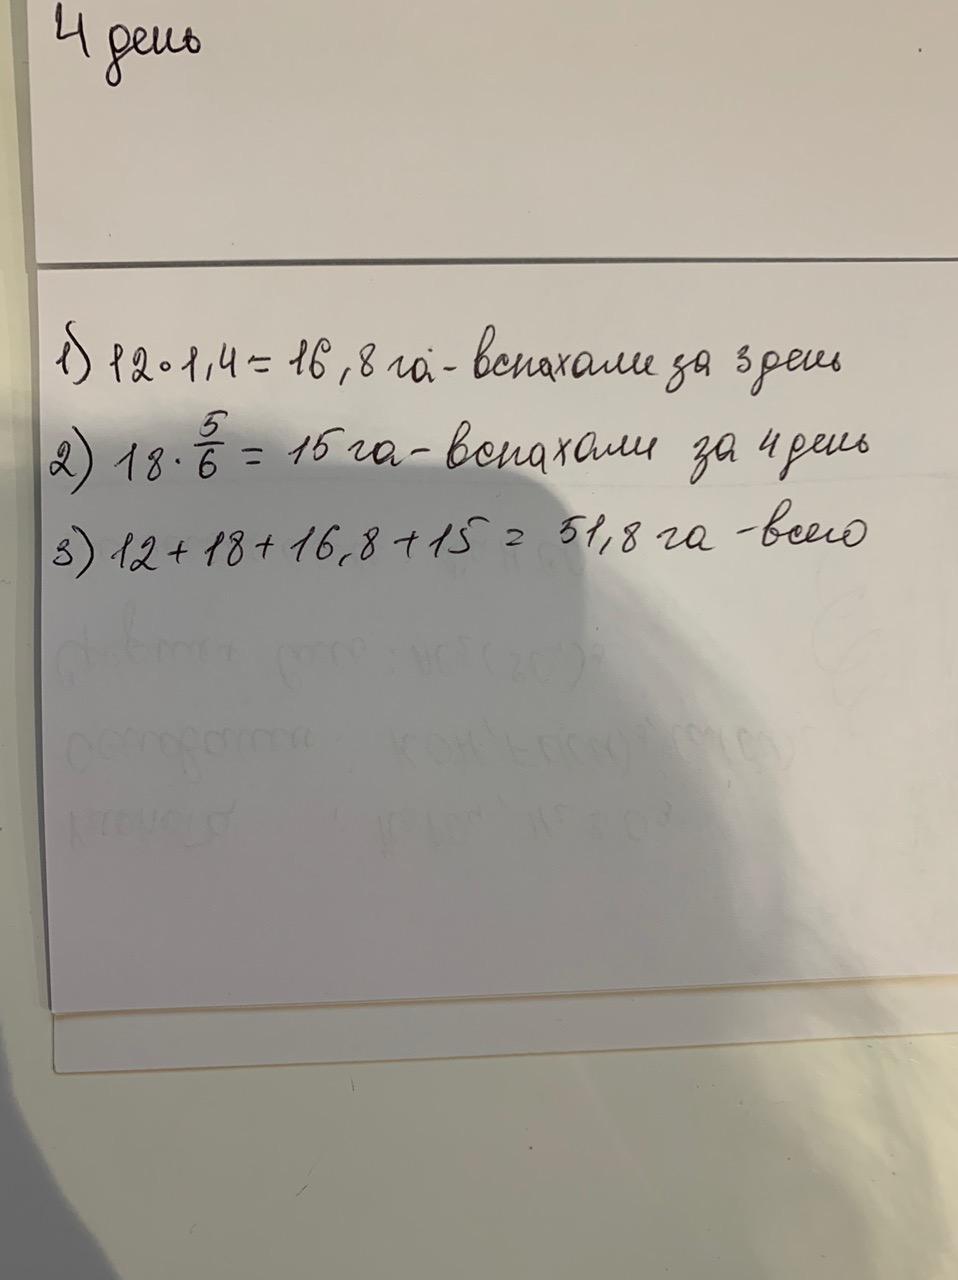 4 день
1) 12•1,4 = 16,8 га - вспахали за 3 день
2) 18 · 5/6 = 15 га - вспахали за 4 день
3) 12 + 18 + 16,8 + 15 = 51,8 га - всего